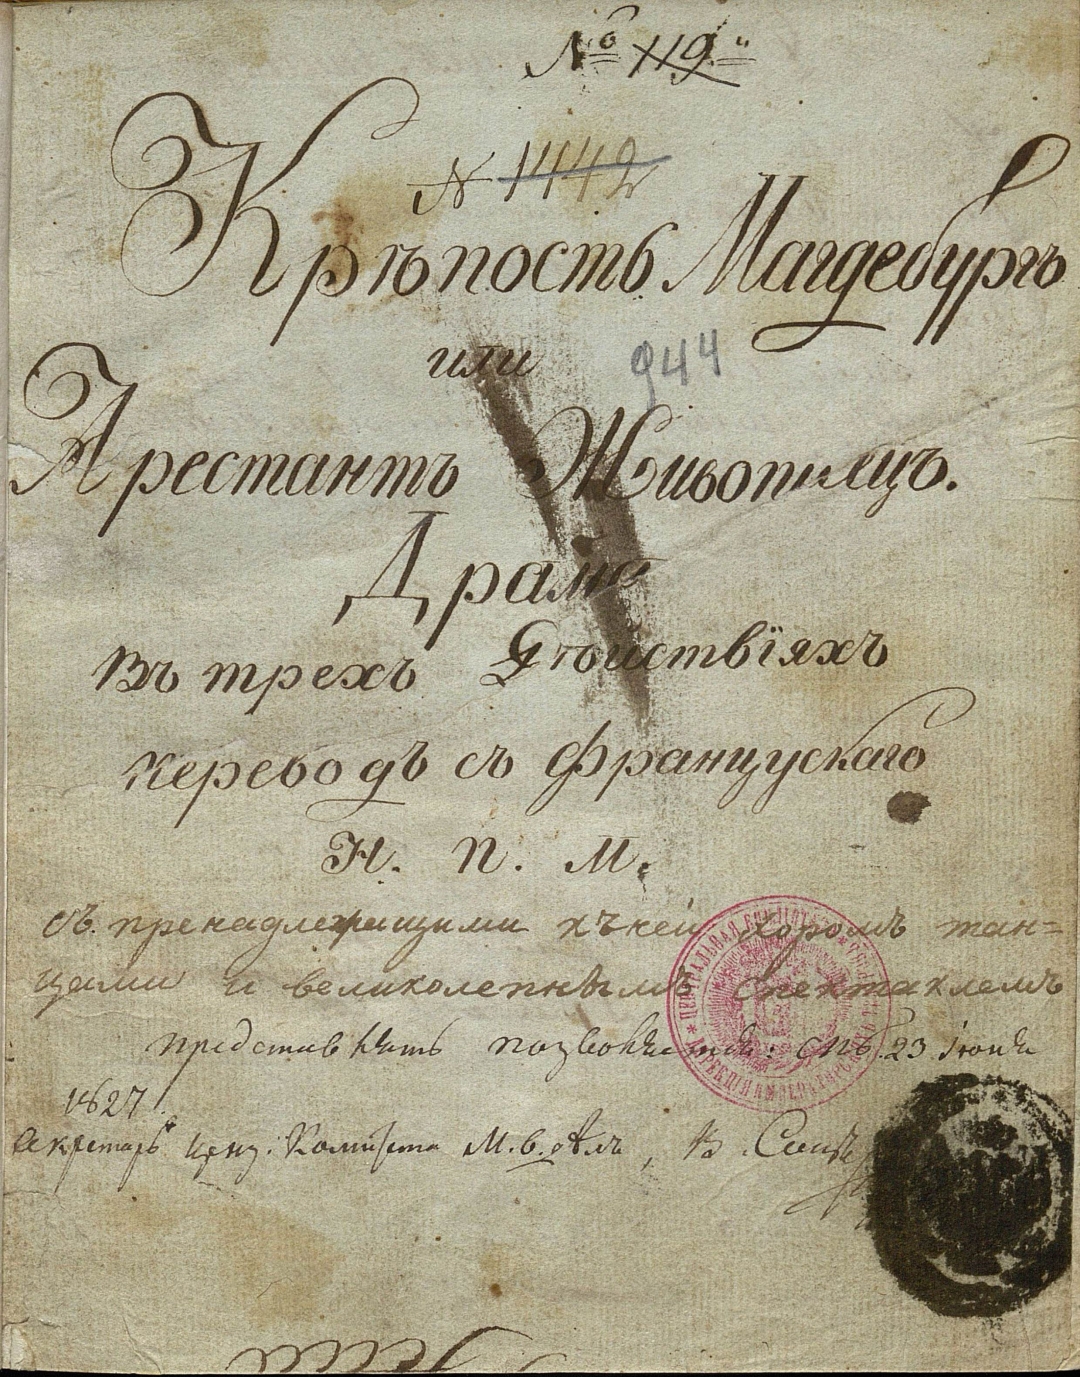 № 119.
№ 1442
Крѣпость Магдебургъ
или
944
Арестантъ Живописецъ.
Драма
Въ трехъ Дѣйствіяхъ
переводъ съ французскаго
Н. П. М.
съ пренадлежащими къ ней хоромъ тан=
цами и великолепнымъ спектаклемъ
представлять позволяется: СПб. 23 Іюня
1827.
Секретарь Ценз: Комитета М. в. дѣлъ, В.